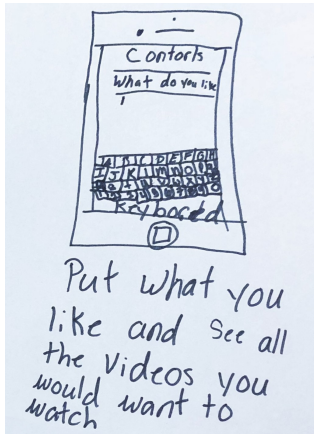 Contorls
What do you like
A B C D E F G H
I J K l m n O P
Keyboarad
Put what you
like and see all
the videos you
would want to
watch